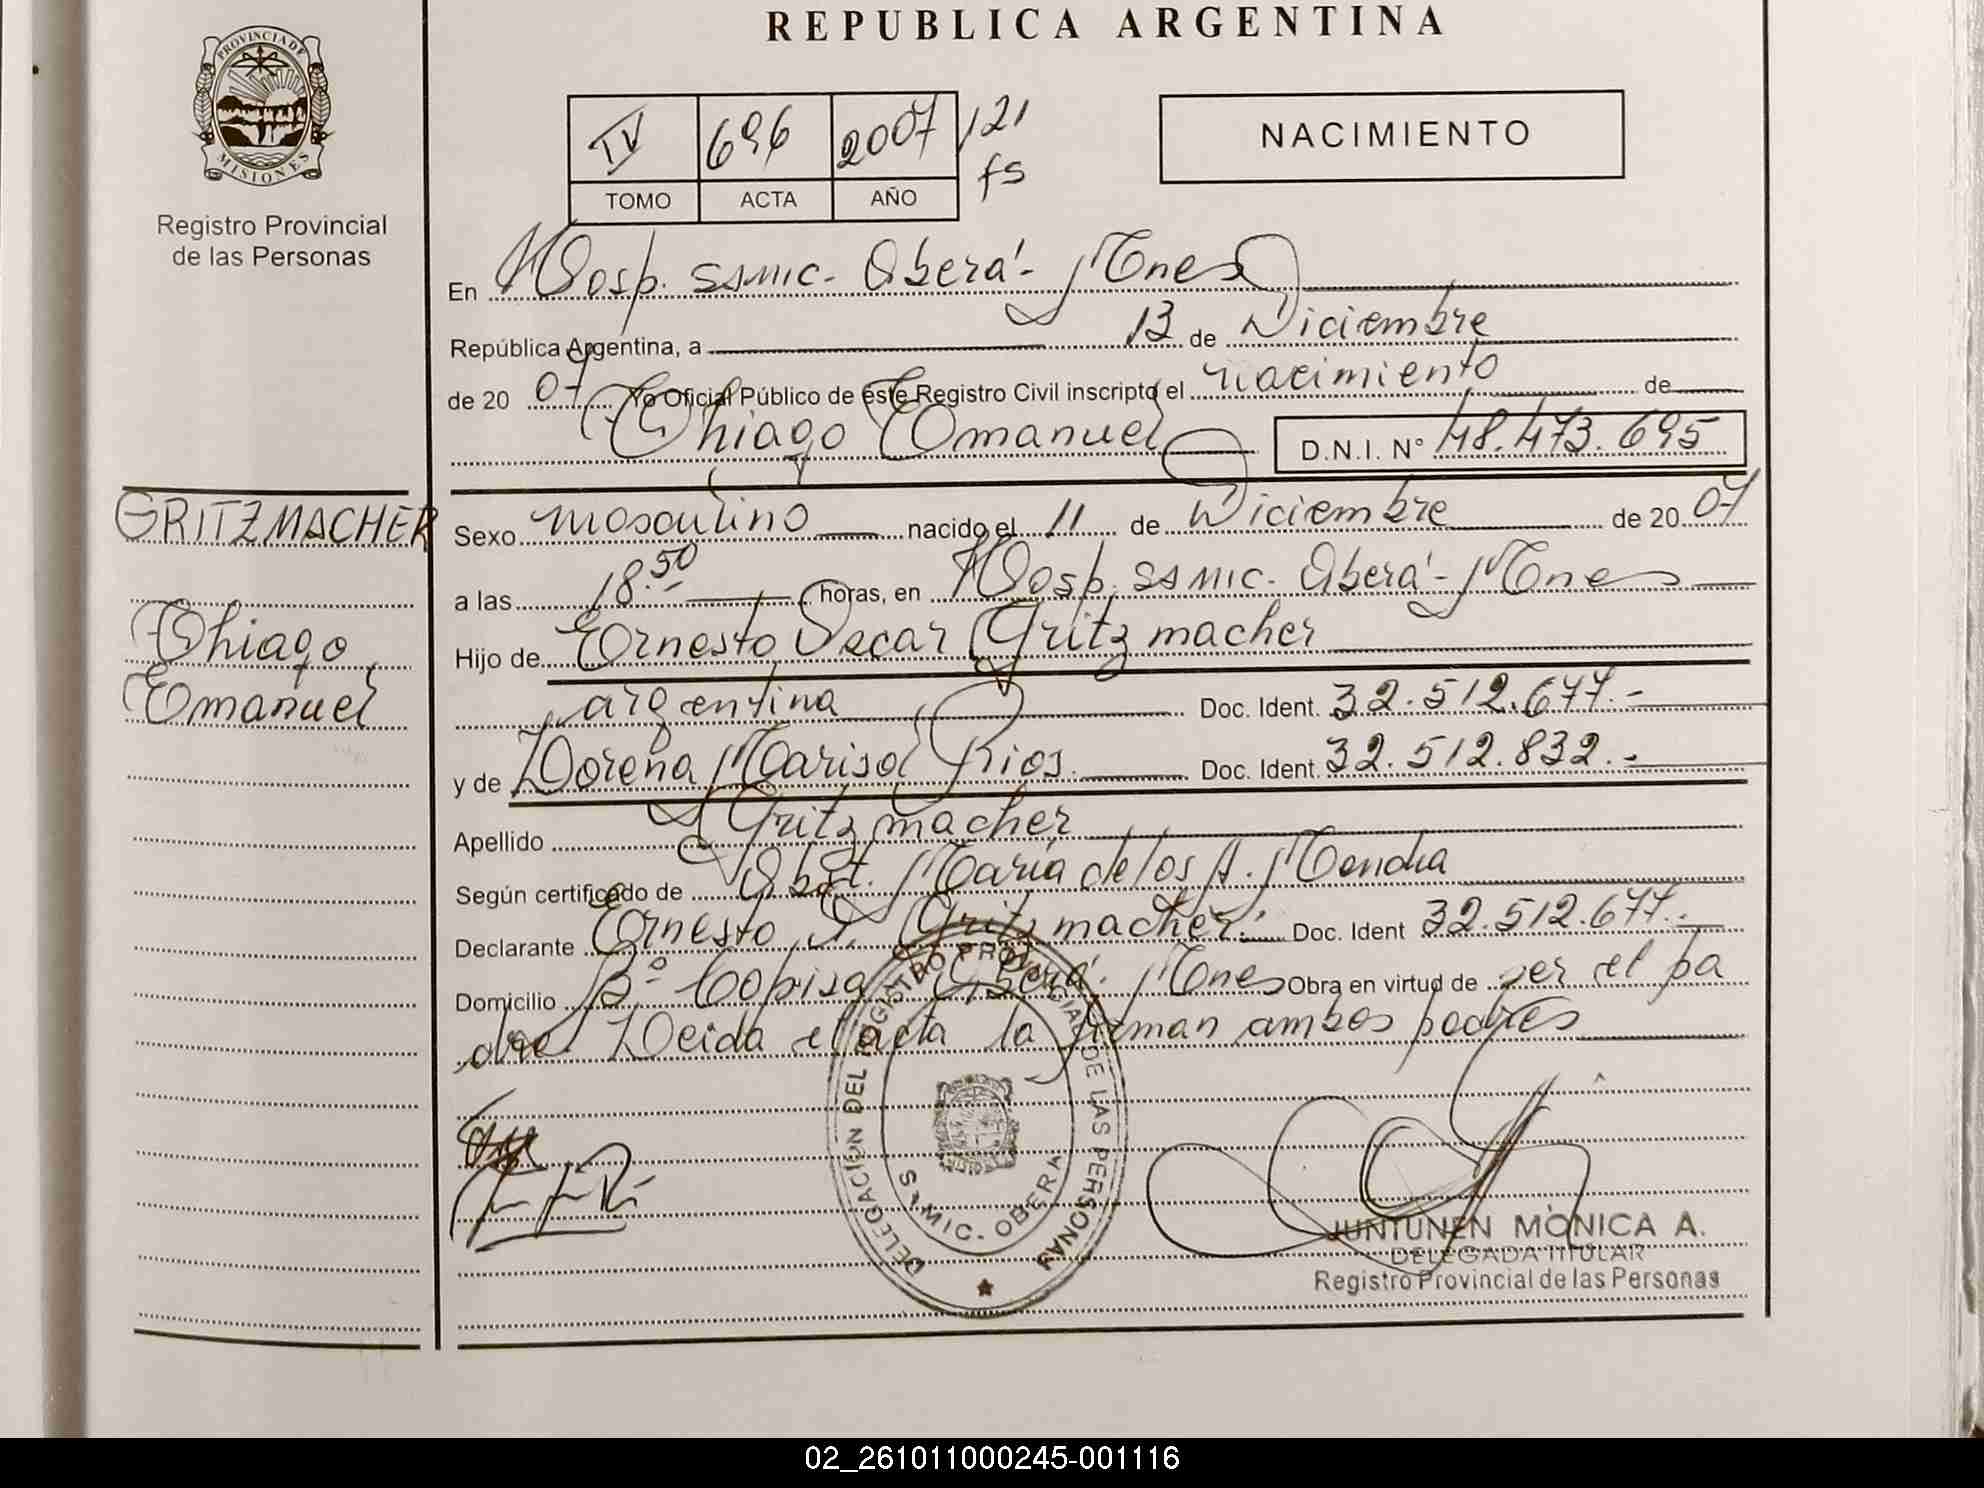 REPUBLICA ARGENTINA
PROVINCIA DE
MISIONES
Registro Provincial
de las Personas
IV 696 2007 121
fs
TOMO ACTA AÑO
NACIMIENTO
En Hosp. SSMIC. Oberá - Mnes
República Argentina, a 13 de Diciembre
de 20 07 Yo Oficial Público de este Registro Civil inscripto el nacimiento de
Thiago Emanuel D.N.I. N° 48.473.695
GRITZMACHER
Thiago
Emanuel
Sexo masculino nacido el 11 de Diciembre de 20 07
a las 18.50 horas, en Hosp. SSMIC. Oberá - Mnes
Hijo de Ernesto Oscar Gritzmacher
argentina Doc. Ident. 32.512.677.-
y de Lorena Marisol Rios. Doc. Ident. 32.512.832.-
Apellido Gritzmacher
Según certificado de Obst. María de los A.
Declarante Ernesto O. Gritzmacher. Doc. Ident 32.512.677.-
Domicilio B° Copisa Oberá. Mnes Obra en virtud de ser el pa
dre. Leida el acta la firman ambos padres
DELEGACION DEL REGISTRO PROVINCIAL DE LAS PERSONAS
S.MIC. - OBERA
JUNTUNEN MÒNICA A.
DELEGADA TITULAR
Registro Provincial de las Personas
02_261011000245-001116